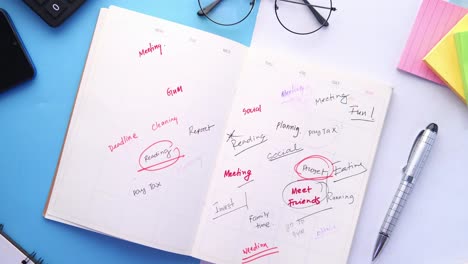 Meeting
GYM
Cleaning
Deadline
Report
Reading
pay TAX
Meeting
Meeting
Social
Fun!
Planning
pay TAX
Reading
Social
Project
Eating
Meeting
Meet
Friends
Running
Invest
Family
time
GO TO
Wedding